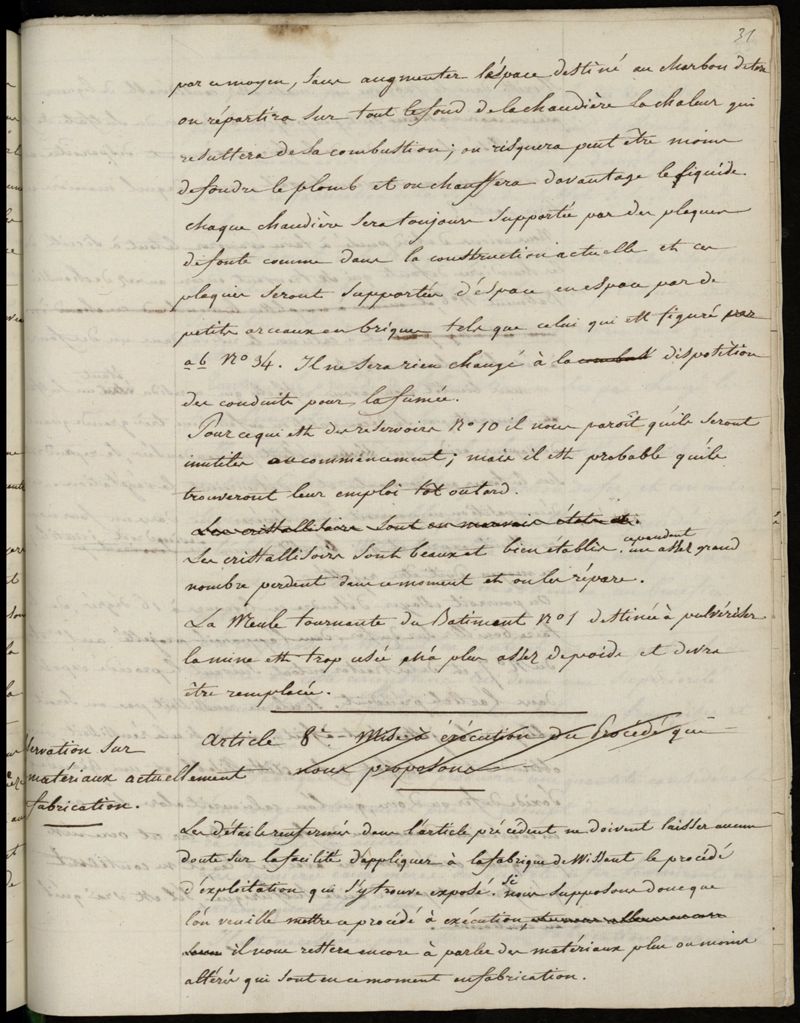 31
par ce moyen, sans augmenter l'éspace destiné au charbon de terre
on répartira sur tout le fond de la chaudière la chaleur qui
resultera de sa combustion; on risquera peut être moins
de fondre le plomb et on chauffera davantage le liquide.
chaque chaudière sera toujours supportée par des plaques
de fonte comme dans la construction actuelle et ces
plaques seront supportées d'éspace en espace par de
petits arceaux en briques tels que celui qui est figuré par
a b No 34. Il ne sera rien changé à la disposition
des conduits pour la fumée.
Pour ce qui est des reservoirs No 10 il nous paroît qu'ils seront
inutiles au commencement; mais il est probable qu'ils
trouveront leur emploi tôt ou tard.
Les cristallisoirs sont en mauvais état et.
Les cristallisoirs sont beaux et bien établis. cependant un assez grand
nombre perdent dans ce moment et on les répare.
La Meule tournante du Batiment No 1 destinée à pulvériser
la mine est trop usée n'a plus assez de poids et devra
être remplacée.
Article 8e. Mise à exécution du Procédé que
nous proposons
servation sur
matériaux actuellement
fabrication.
Les détails renfermés dans l'article précédent ne doivent laisser aucun
doute sur la facilité d'appliquer à la fabrique de Wissant le procédé
d'exploitation qui s'y trouve exposé. Si nous supposons donc que
l'on veuille mettre ce procédé à exécution,
il nous restera encore à parler des matériaux plus ou moins
altérés qui sont en ce moment en fabrication.